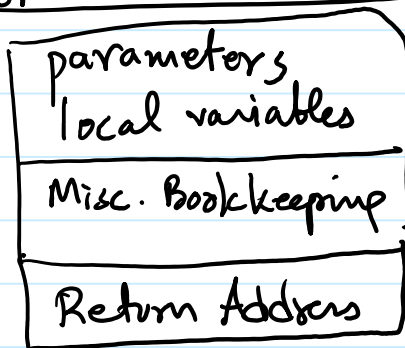 parameters
local variables
Misc. Bookkeeping
Return Address